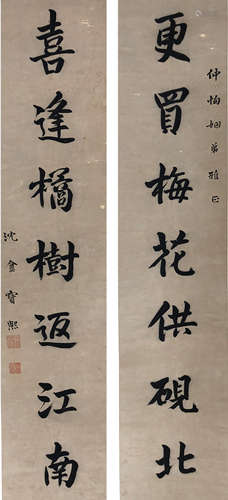 仲怡姻弟雅正
更買梅花供硯北
喜逢橘樹返江南
沈盦寶熙